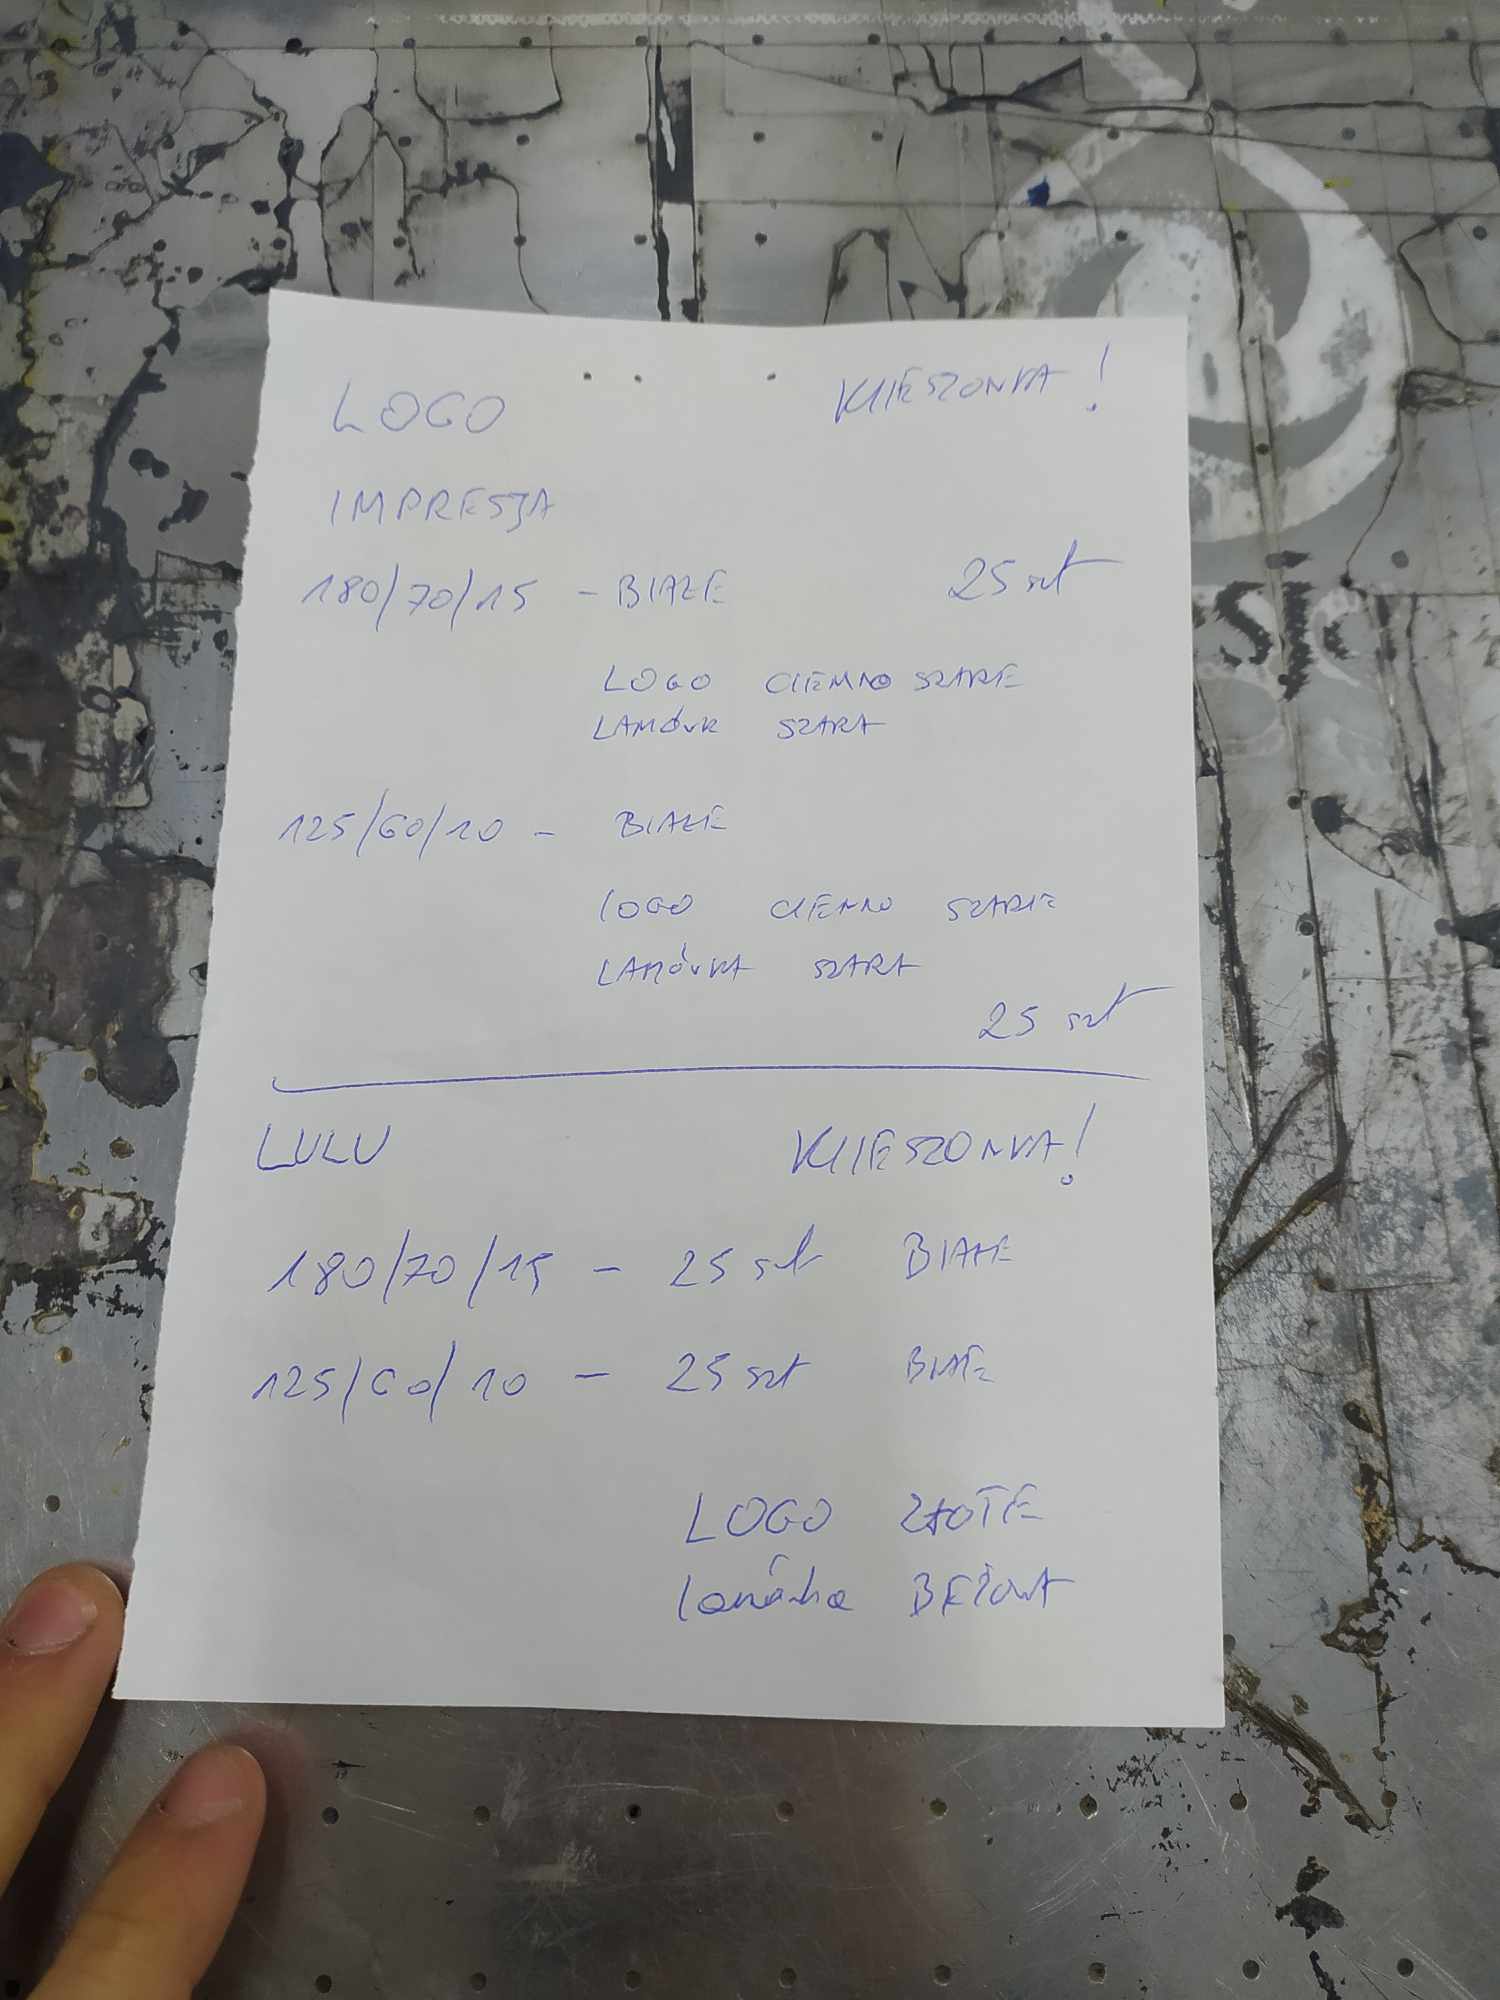 LOGO KIESZONKA!
IMPRESJA
180/70/15 - BIAŁE 25 szt
LOGO CIEMNO SZARE
LAMÓWK SZARA
125/60/10 - BIAŁE
LOGO CIEMNO SZARE
LAMÓWKA SZARA
25 szt
LULU KIESZONKA!
180/70/15 - 25 szt BIAŁE
125/60/10 - 25 szt BIAŁE
LOGO ZŁOTE
lamówka BEŻOWA